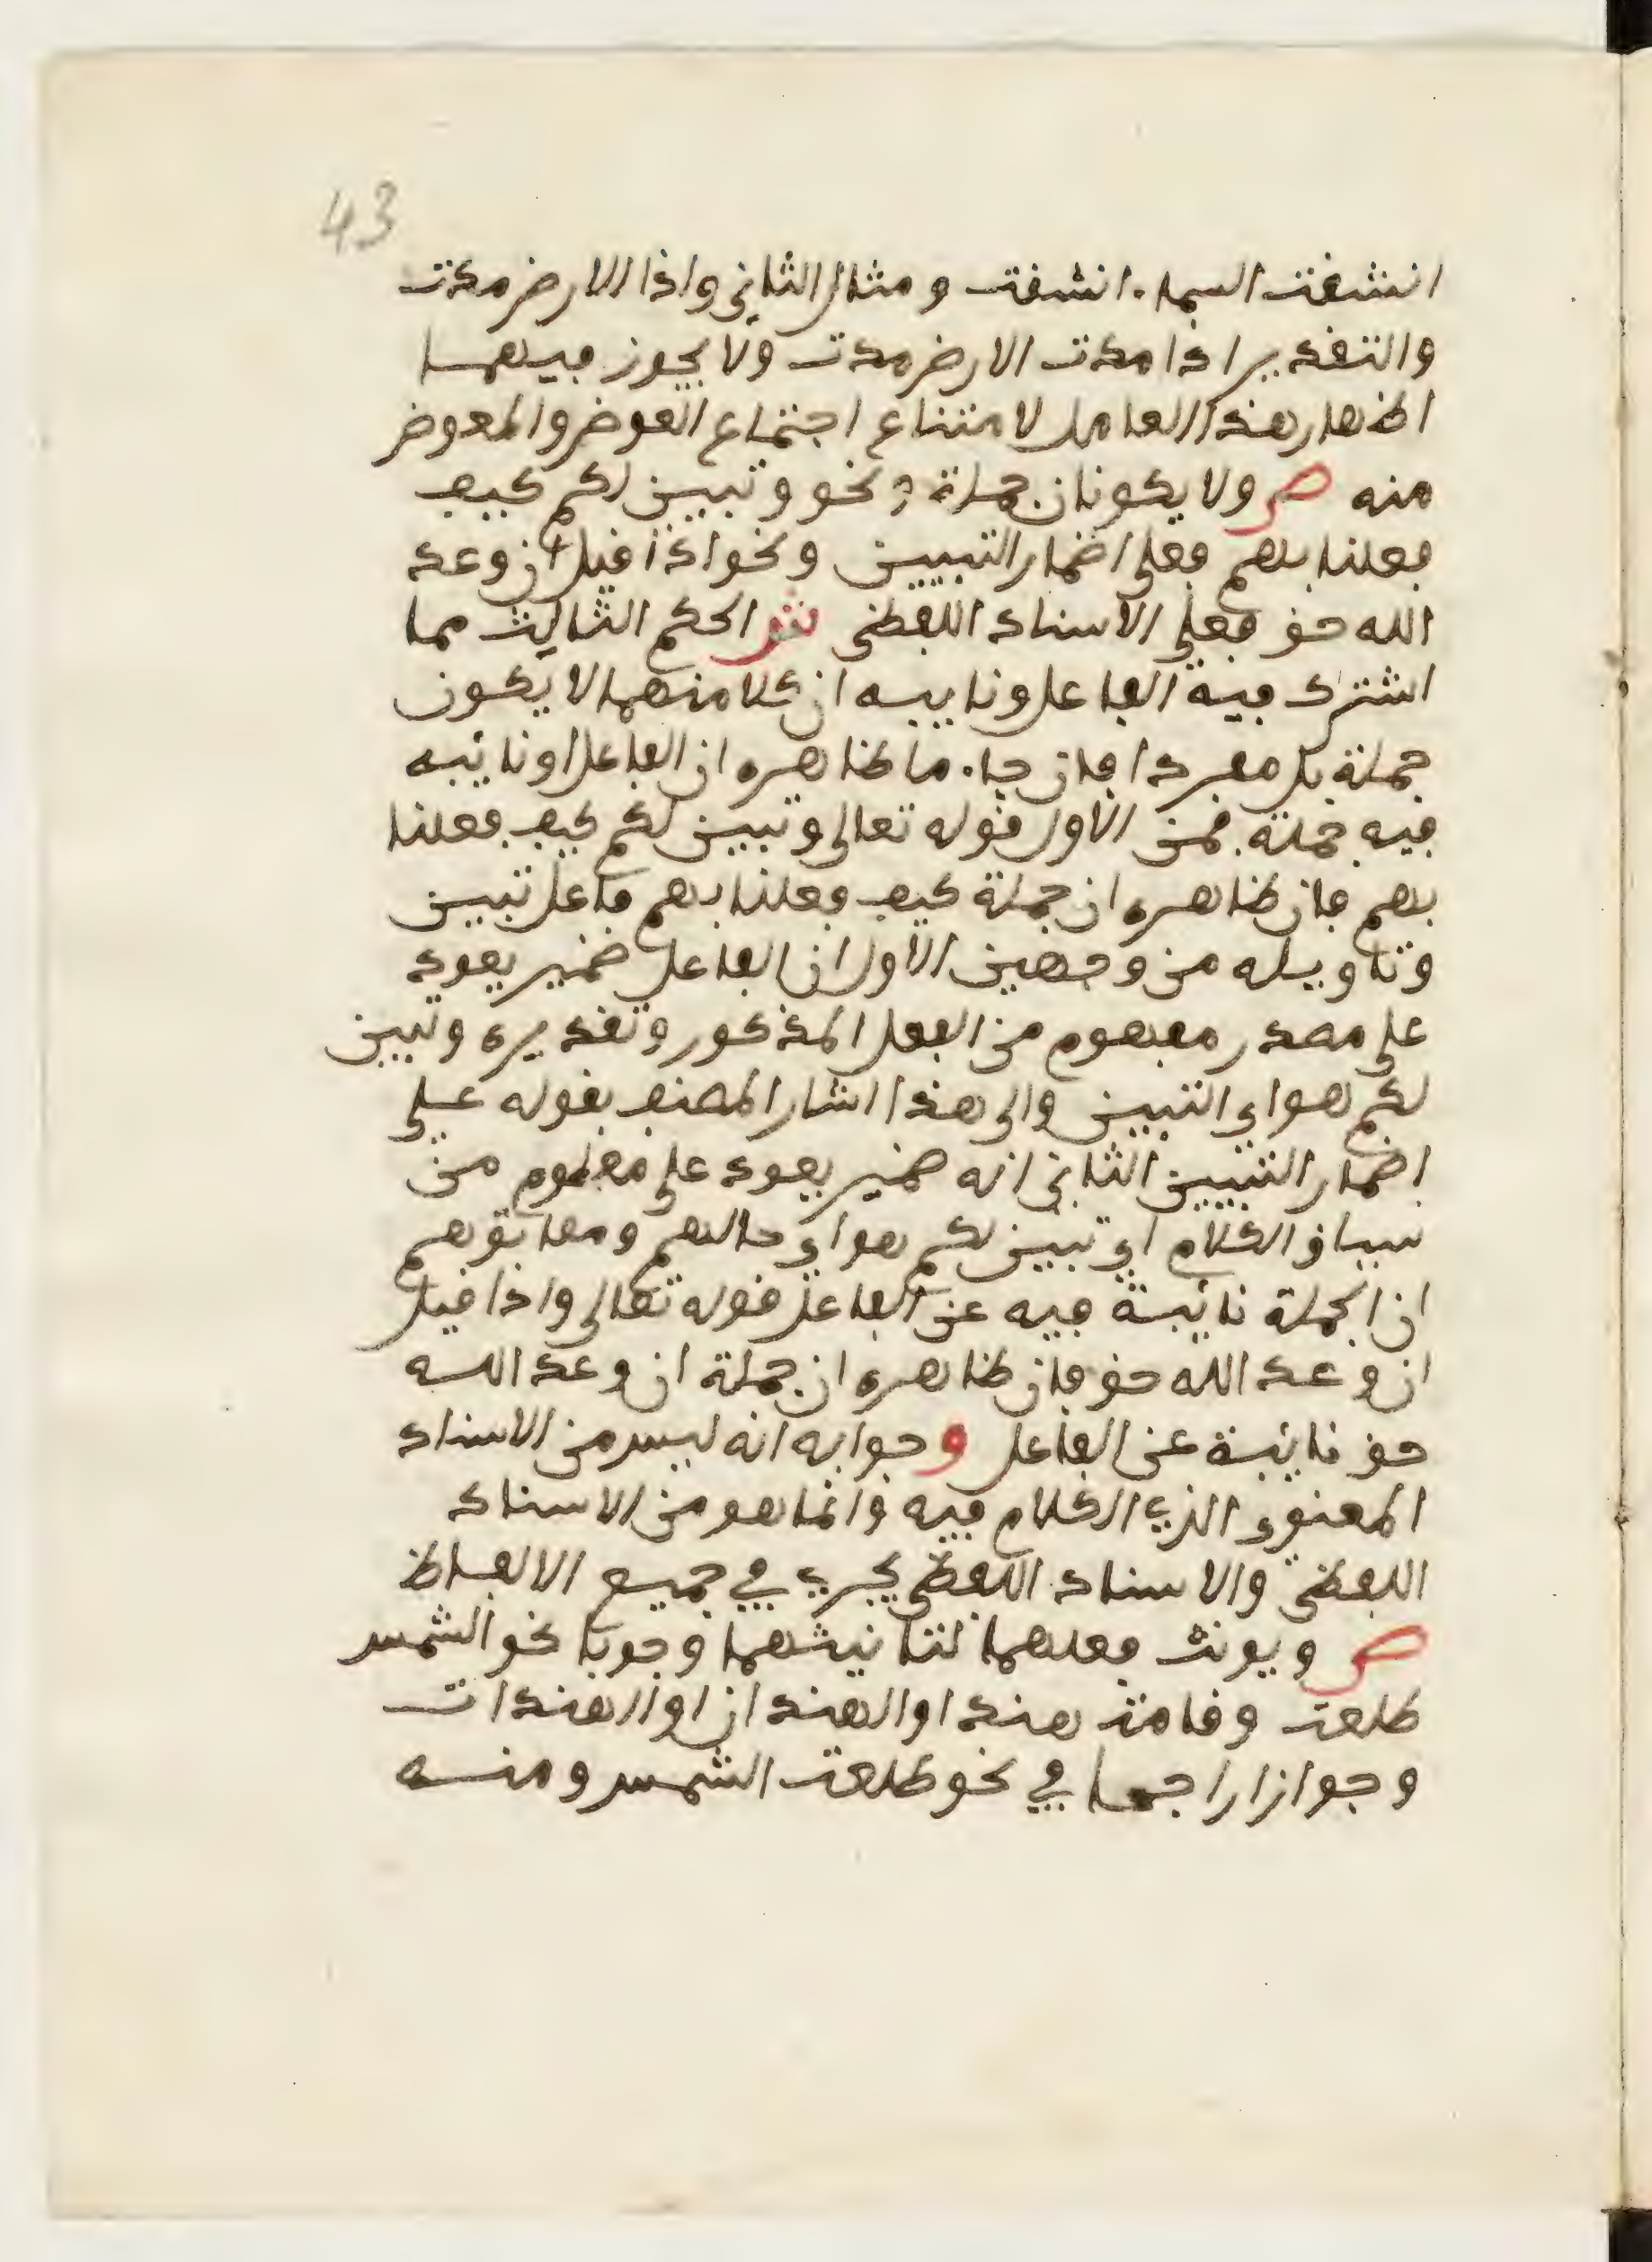 43
انشقت السماء انشقت ومثال الثاني واذا الارض مدت
والتقدير اذا مدت الارض مدت ولا يجوز فيهما
اظهار هذا العامل لامتناع اجتماع العوض والمعوض
منه ص ولا يكونان جملة فنحو وتبين لكم كيف
فعلنا بهم فعلى اضمار التبيين ونحو اذا قيل ان وعد
الله حق فعلى الاسناد اللفظي ش الحكم الثالث مما
اشترك فيه الفاعل ونايبه ان كلا منهما لا يكون
جملة بل مفردا فان جاء ما ظاهره ان الفاعل او نائبه
فيه جملة فمن الاول قوله تعالى وتبين لكم كيف فعلنا
بهم فان ظاهره ان جملة كيف فعلنا بهم فاعل تبين
وتاويله من وجهين الاول ان الفاعل ضمير يعود
على مصدر مفهوم من الفعل المذكور وتقديره وتبين
لكم هو اي التبيين والى هذا اشار المصنف بقوله على
اضمار التبيين الثاني انه ضمير يعود على معلوم من
سياق الكلام اي تبين لكم هو اي حالهم ومما توهم
ان الجملة نائبة فيه عن الفاعل قوله تعالى واذا قيل
ان وعد الله حق فان ظاهره ان جملة ان وعد الله
حق نائبة عن الفاعل وجوابه انه ليس من الاسناد
المعنوي الذي الكلام فيه وانما هو من الاسناد
اللفظي والاسناد اللفظي يجري في جميع الالفاظ
ص ويونث فعلهما لتانيثهما وجوبا نحو الشمس
طلعت وقامت هند او الهندان او الهندات
وجوازا راجحا في نحو طلعت الشمس ومنه